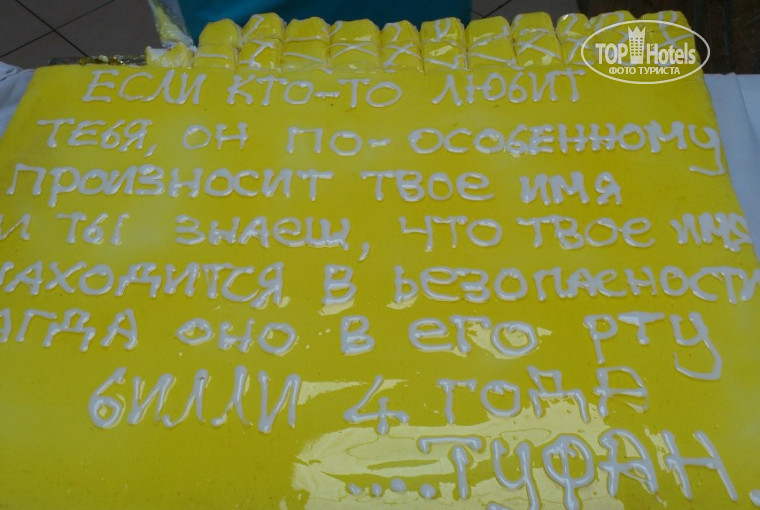 TOPHotels
ФОТО ТУРИСТА
ЕСЛИ КТО-ТО ЛЮБИТ
ТЕБЯ, ОН ПО-ОСОБЕННОМУ
ПРОИЗНОСИТ ТВОЕ ИМЯ
И ТЫ ЗНАЕШ, ЧТО ТВОЕ ИМЯ
НАХОДИТСЯ В БЕЗОПАСНОСТИ
АГДА ОНО В ЕГО РТУ
БИЛЛИ 4 ГОДА
.....ТУФАН.